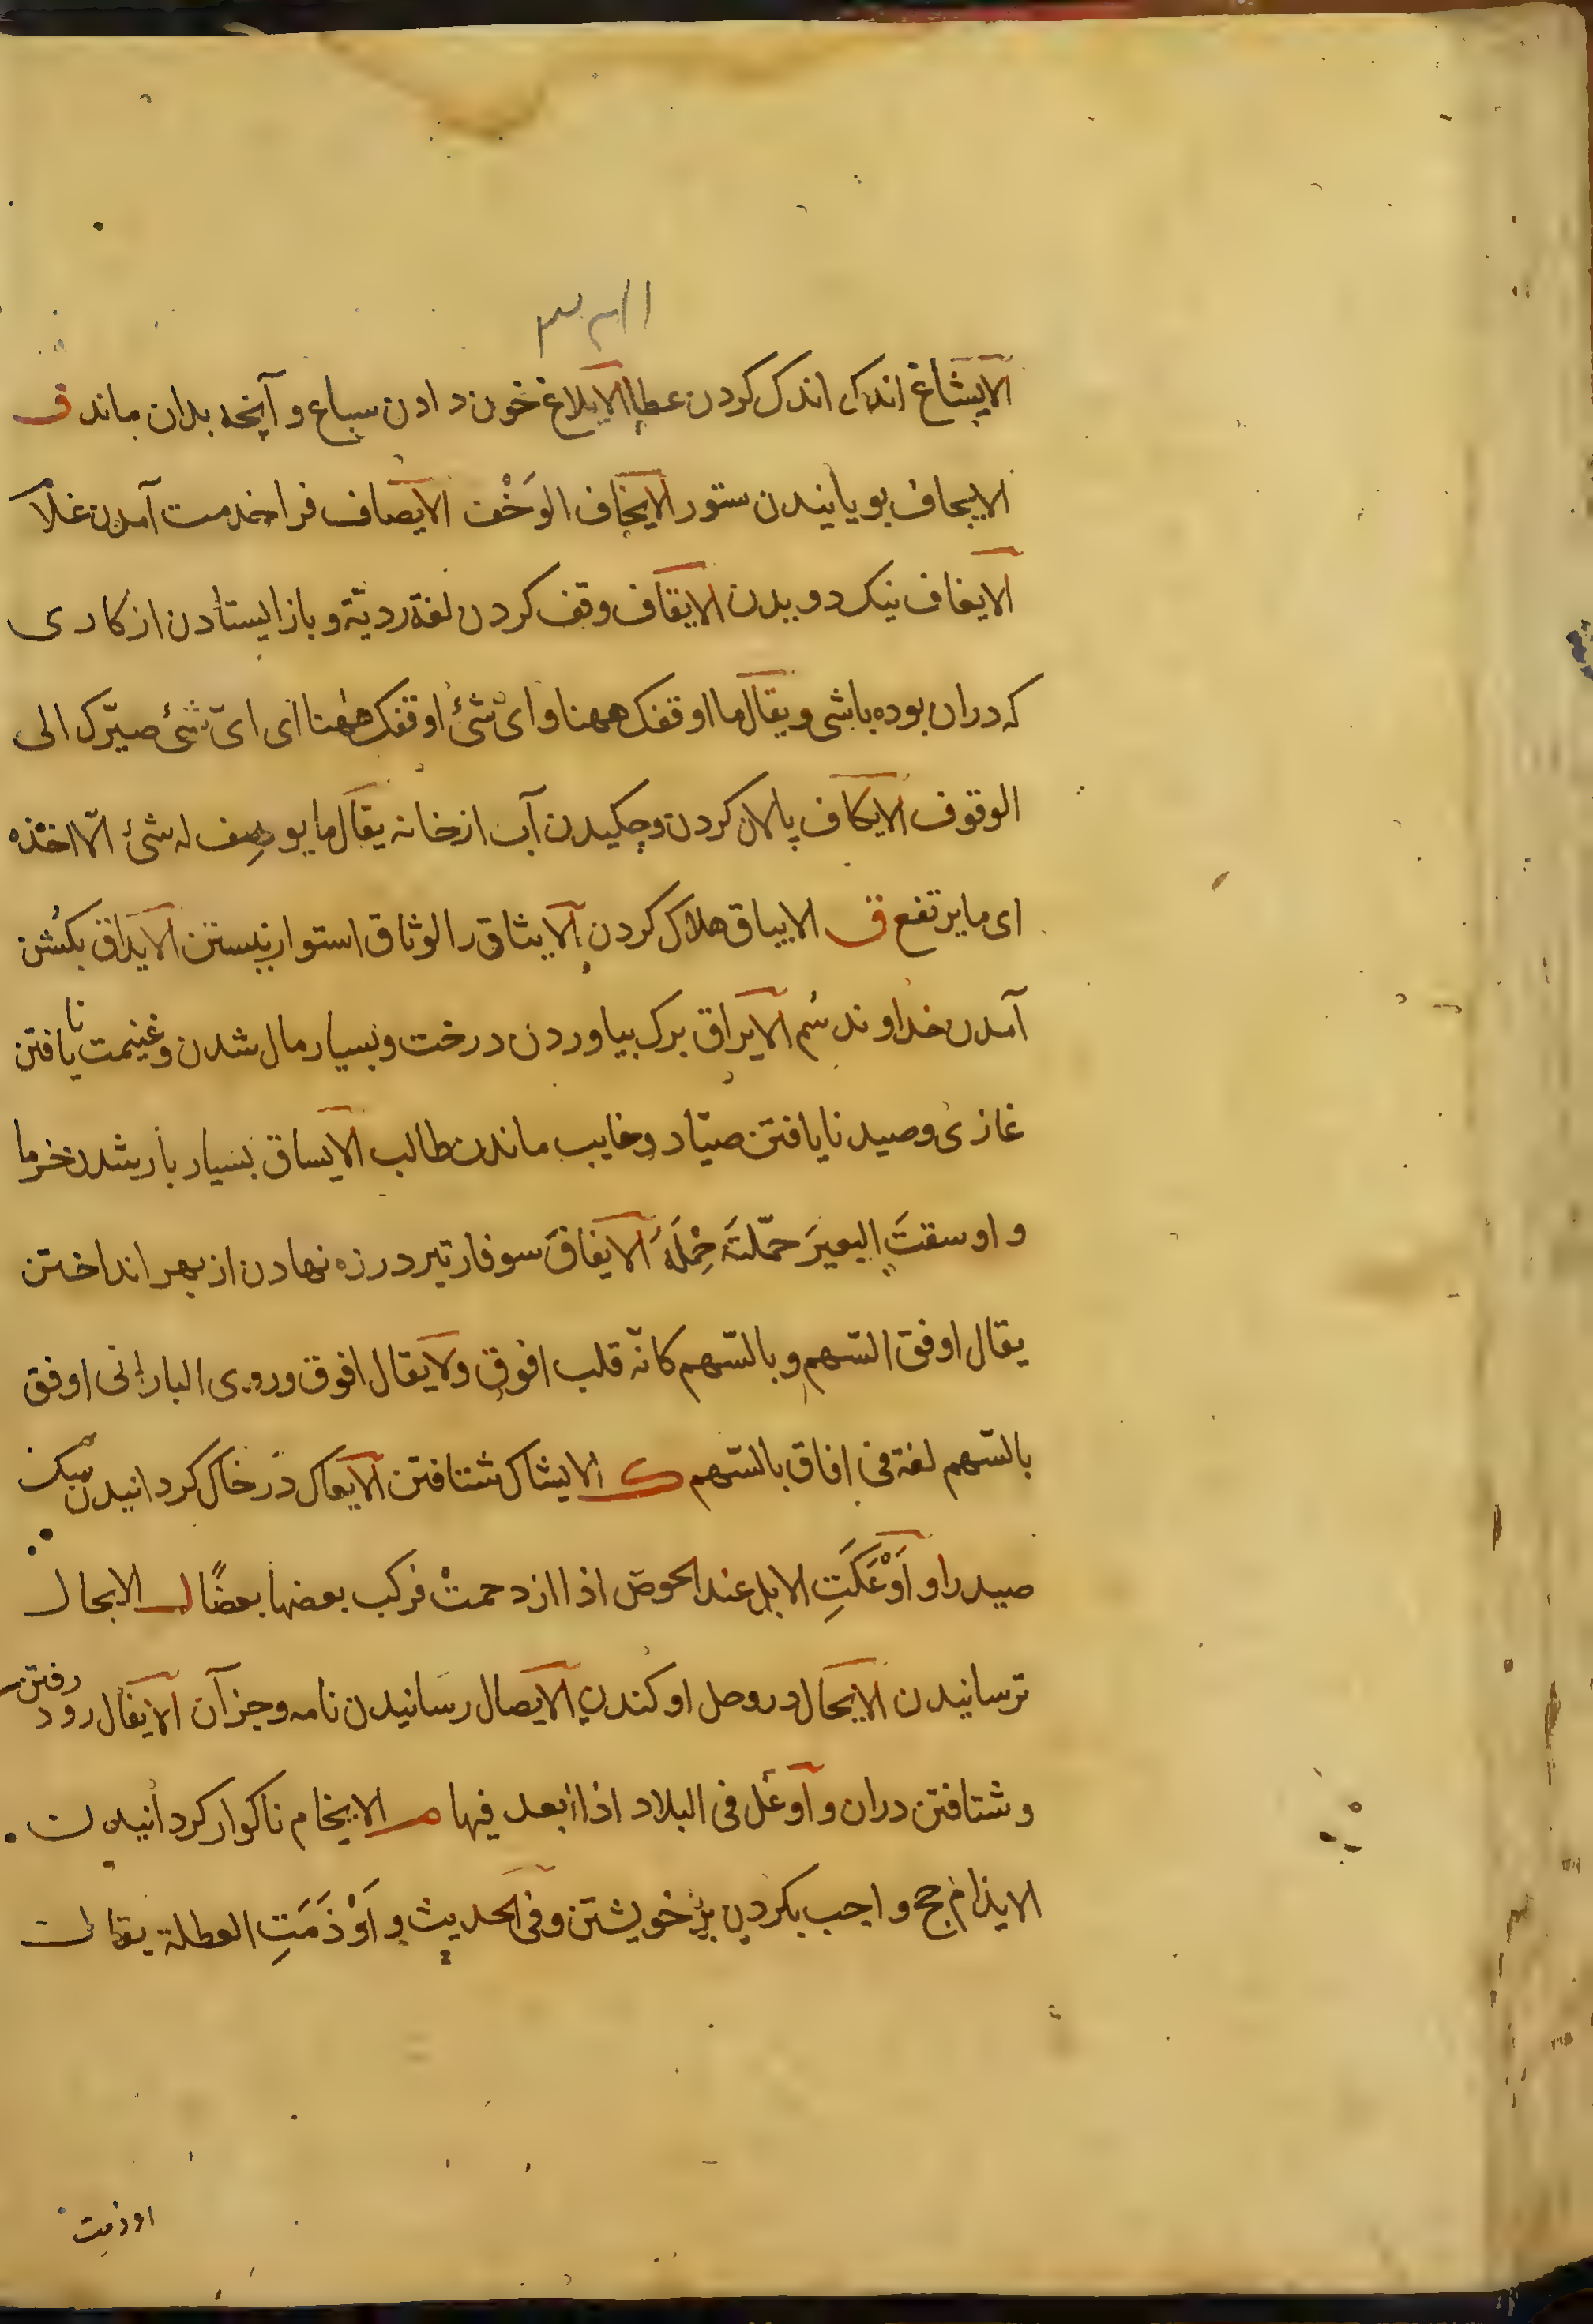 الایشاغ اندک اندک کردن عطا الایلاغ خون دادن سباع و آنچه بدان ماند ف
الایجاف بویانیدن ستور الایخاف الوَخْف الایصاف فراخدمت آمدن غلام
الایغاف نیک دویدن الایقاف وقف کردن لغة ردیّة و باز ایستادن از کاری
که دران بوده باشی و یقال ما اوقفک ههنا و ایّ شئ اوقفک ههنا ای ایّ شئ صیّرک الی
الوقوف الایکاف پالان کردن و چکیدن آب از خانه یقال ما یوهف له شئ الّا اخذه
ای ما یرتفع ق الایباق هلاک کردن الایثاق ر الوثاق استوار ببستن الایداق بکشن
آمدن خداوند سُم الایراق برک بیاوردن درخت و بسیار مال شدن و غنیمت نایافتن
غازی و صید نایافتن صیّاد و خایب ماندن طالب الایساق بسیار بار شدن خرما
و اوسقتَ البعیرَ حمّلتَه حِمْلَهُ الایفاق سوفار تیر در زه نهادن از بهر انداختن
یقال اوفق السّهم و بالسّهم کانّه قلب افوق ولا یقال افوق و روی البارانی اوفق
بالسّهم لغة فی افاق بالسّهم ک الایشاک شتافتن الایعاک در خاک کردانیدن سک
صید را و اَوْعَکَتِ الابل عند الحوض اذا ازدحمتْ فرکب بعضها بعضًا ل الایجال
ترسانیدن الایحال در وحل اوکندن الایصال رسانیدن نامه و جز آن الایغال رود رفتن
و شتافتن دران و اَوغل فی البلاد اذا ابعد فیها م الایخام ناکوار کردانیدن
الایذام حج واجب بکردن بر خویشتن و فی الحدیث و اَوْذَمَتِ العطلة یقال
اوذمت